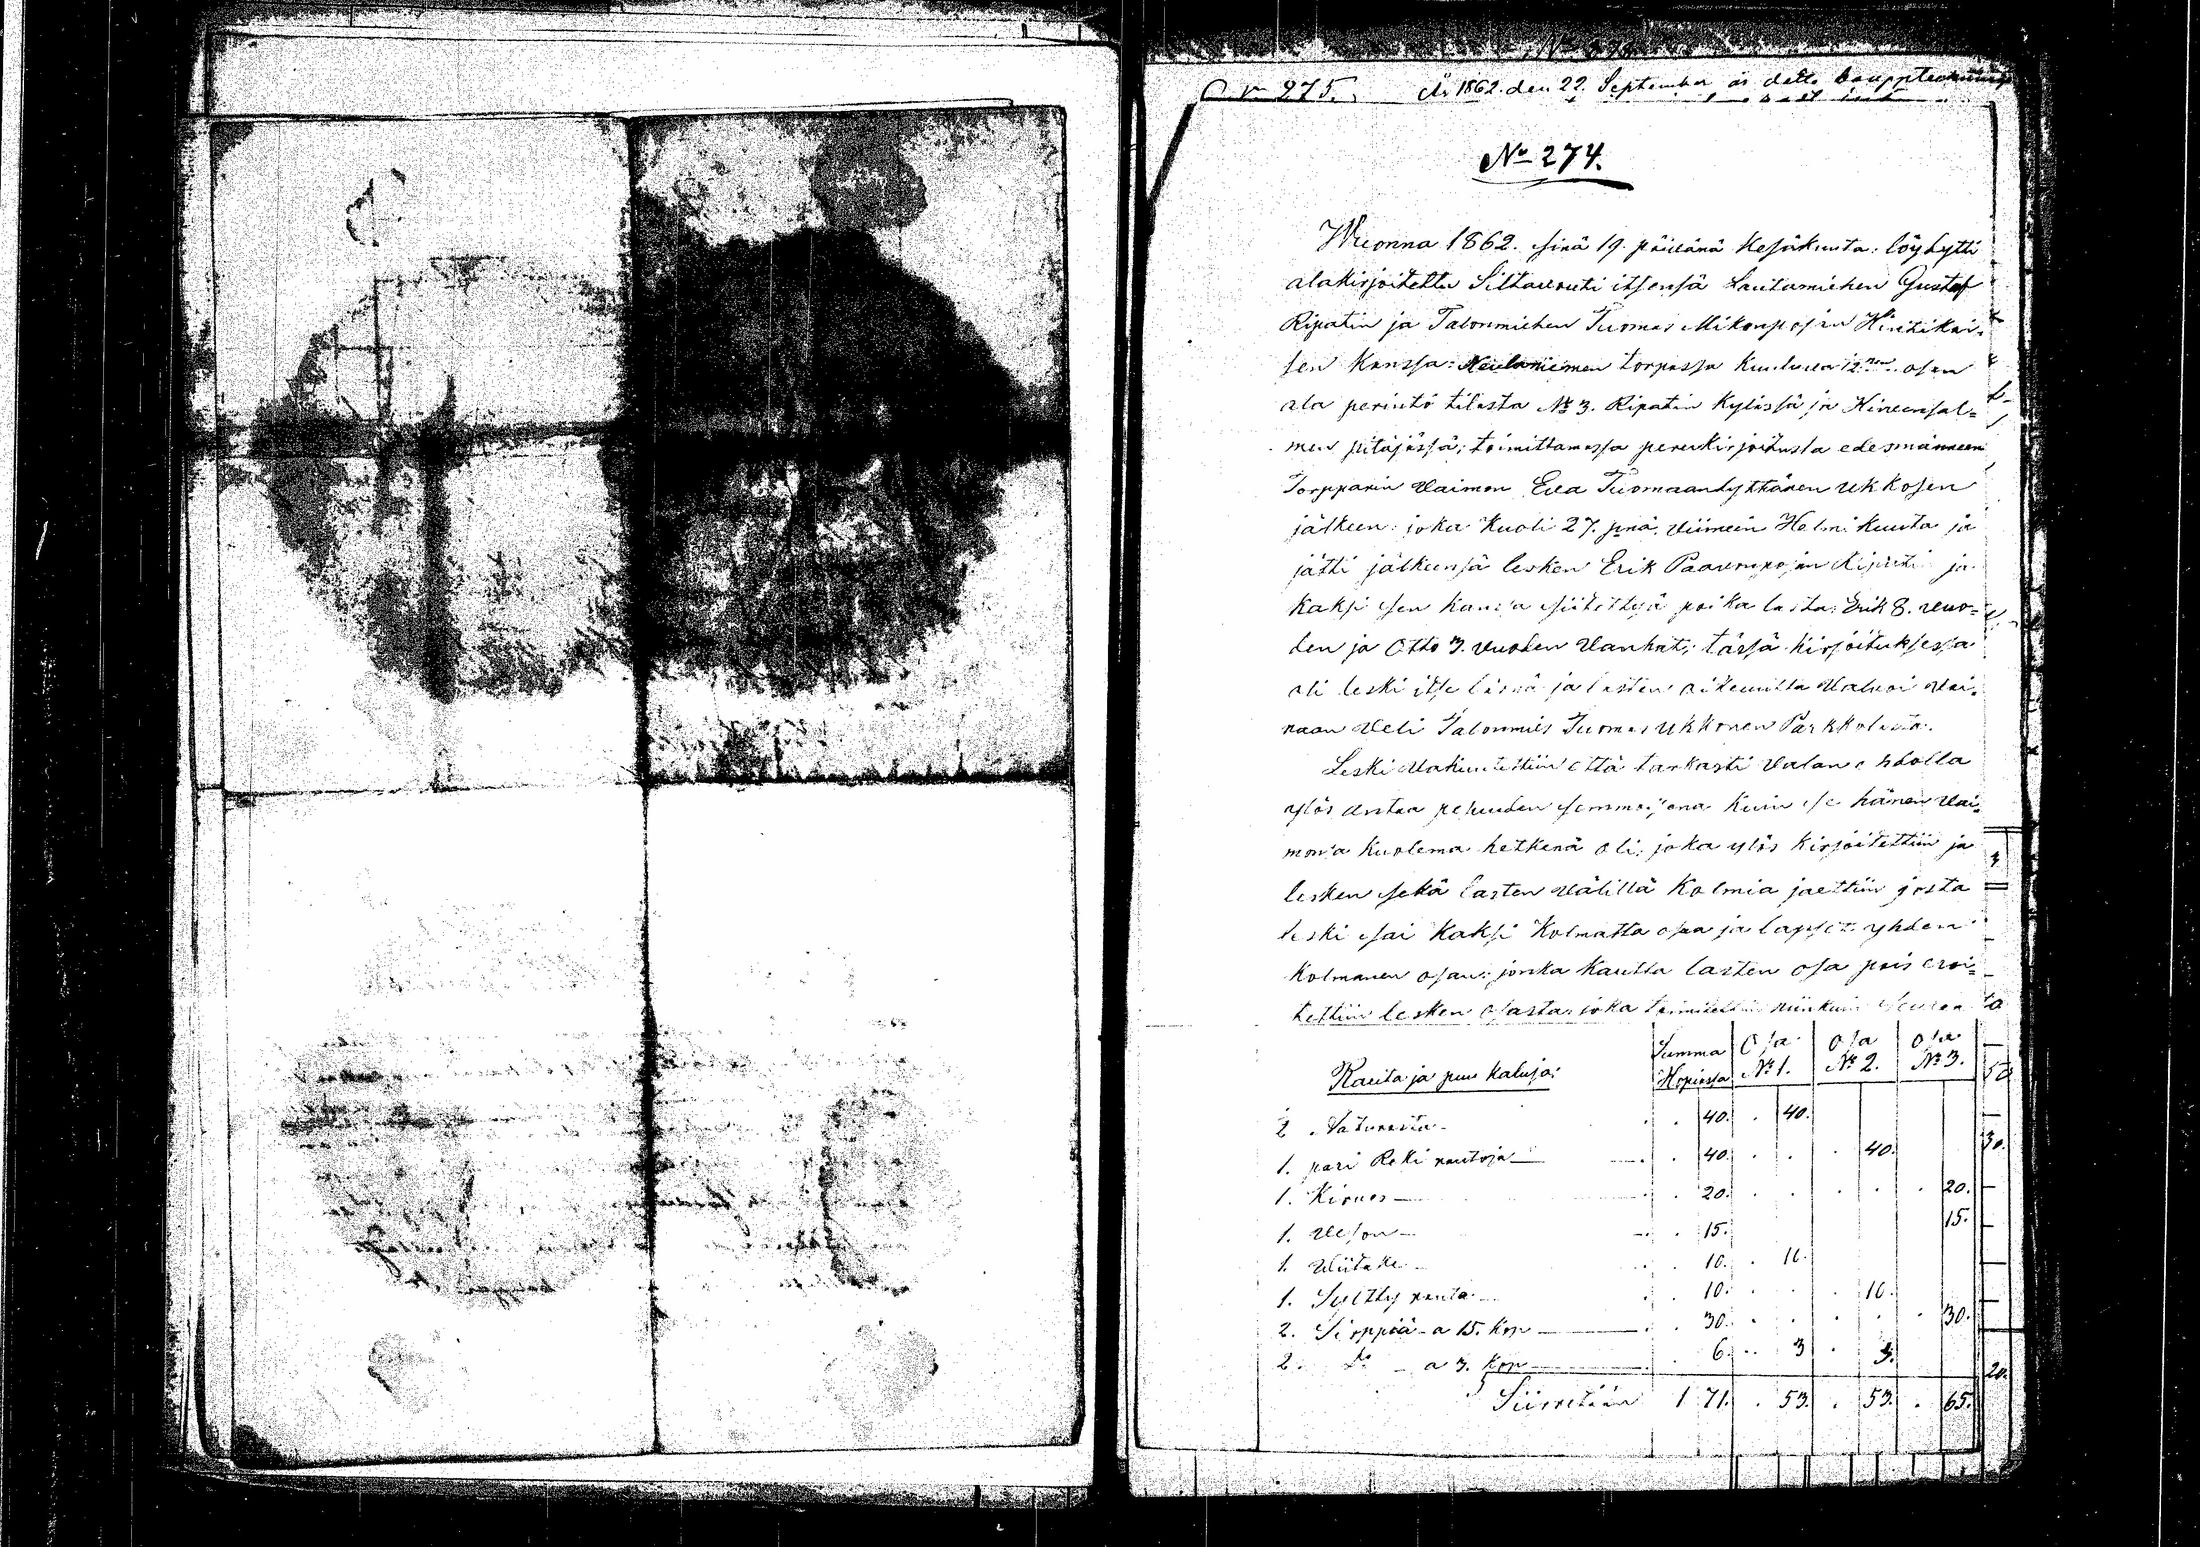 No 275. År 1862. den 22 September är detta bouppteckning
No 274.
Wuonna 1862. sinä 19. päivänä Kesäkuuta: löyhytti
alakirjoitettu Siltavouti itsensä Lautamiehen Gustaf
Ripatin ja Talonmiehen Tuomas Mikonpojan Hintikai-
sen kanssa: torpassa kuuluva 12nen osan
ala perintö tilasta No 3. Ripatin kylässä ja Kivensal-
men pitäjässä; toimittamassa perunkirjoitusta edesmänneen
Torpparin Vaimon Eva Tuomaantyttären Ukkosen
jälkeen: joka kuoli 27. pnä. viimein Helmikuuta ja
jätti jälkeensä lesken Erik Paavonpojan Ripatin ja
kaksi sen kanssa siitettyä poika lasta: Erik 8. vuo-
den ja Otto 3. vuoden vanhat; tässä kirjoituksessa
oli leski itse läsnä ja lasten oikeutta valvoi vai-
naan veli Talonmies Tuomas Ukkonen Parkkolasta.
Leski vakuutettiin että tarkasti valan ehdolla
ylös antaa pesuuden semmoisena kuin se hänen vai-
monsa kuolema hetkenä oli; joka ylös kirjoitettiin ja
lesken sekä lasten välillä kolmia jaettiin josta
leski sai kaksi kolmatta osaa ja lapset yhden
kolmanen osan: jonka kautta lasten osa pois eroi-
tettiin lesken osasta, joka toimitettiin niinkuin seuraa
Rauta ja puu kaluja: Summa Hopiassa Osa No 1. Osa No 2. Osa No 3.
2 . 40. . 40.
1. pari Reki rautoja . 40. . 40.
1. Kirves . 20. . 20.
1. Veson . 15. 15.
1. Viitake . 10. . 10.
1. rauta . 10. . 10.
2. Sirppiä a 15. kop . 30. . 30.
2. do a 3. kop . 6. . 3 . 3.
Siirretään 1 71. . 53. . 53. . 65.